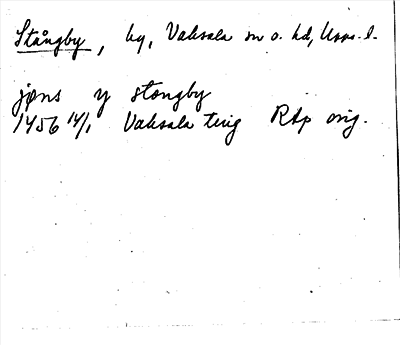 Stångby, by, Vaksala sn o. hd, Upps. l.
jøns y stongby
1456 14/1 Vaksala ting RAp orig.